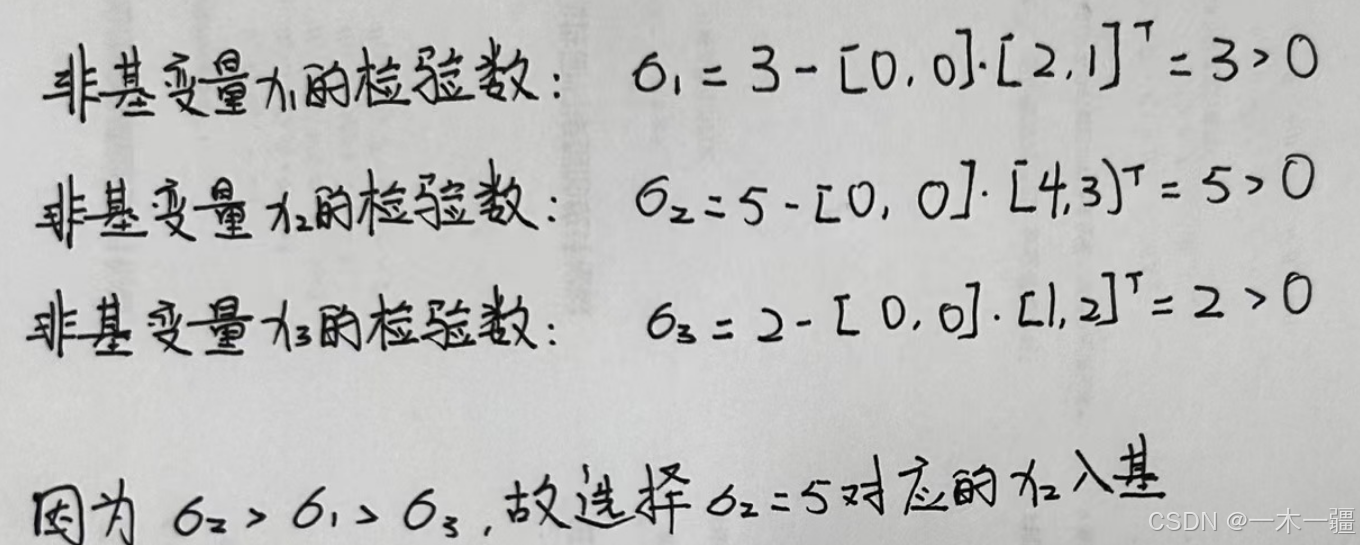 非基变量x₁的检验数: σ₁ = 3 - [0, 0]·[2, 1]ᵀ = 3 > 0
非基变量x₂的检验数: σ₂ = 5 - [0, 0]·[4, 3)ᵀ = 5 > 0
非基变量x₃的检验数: σ₃ = 2 - [0, 0]·[1, 2]ᵀ = 2 > 0
因为 σ₂ > σ₁ > σ₃, 故选择 σ₂ = 5 对应的 x₂ 入基
CSDN @一木一疆